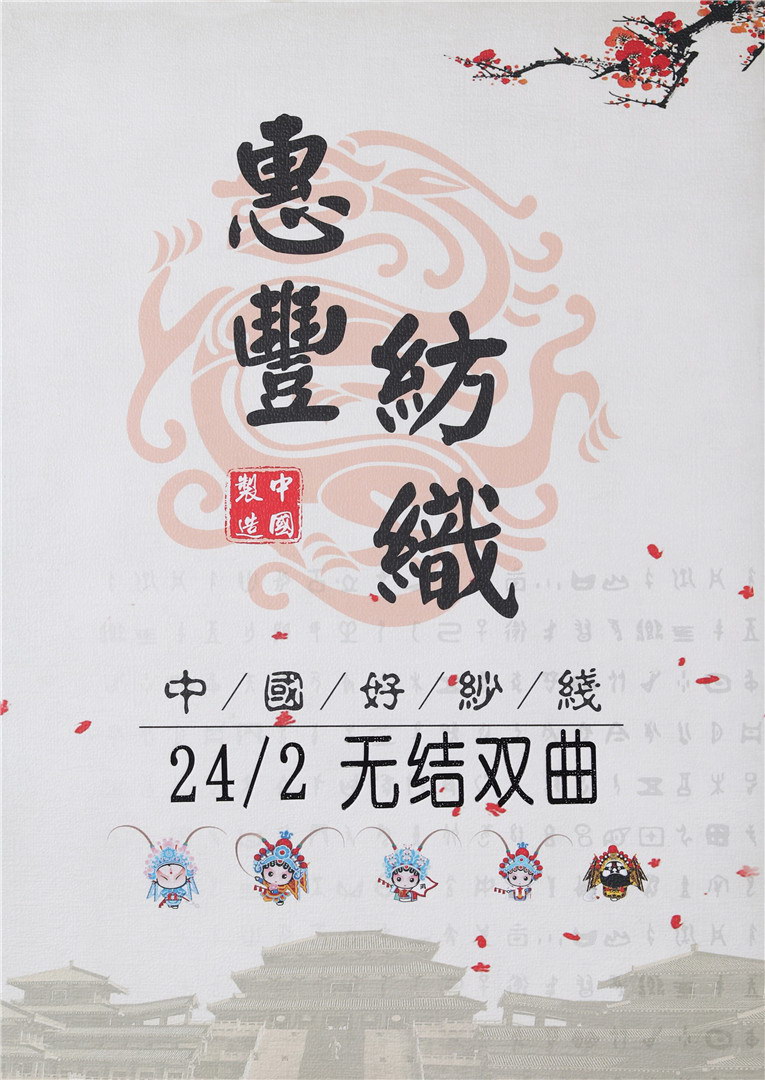 惠豐
紡織
中國
製造
中/國/好/紗/綫
24/2 无结双曲